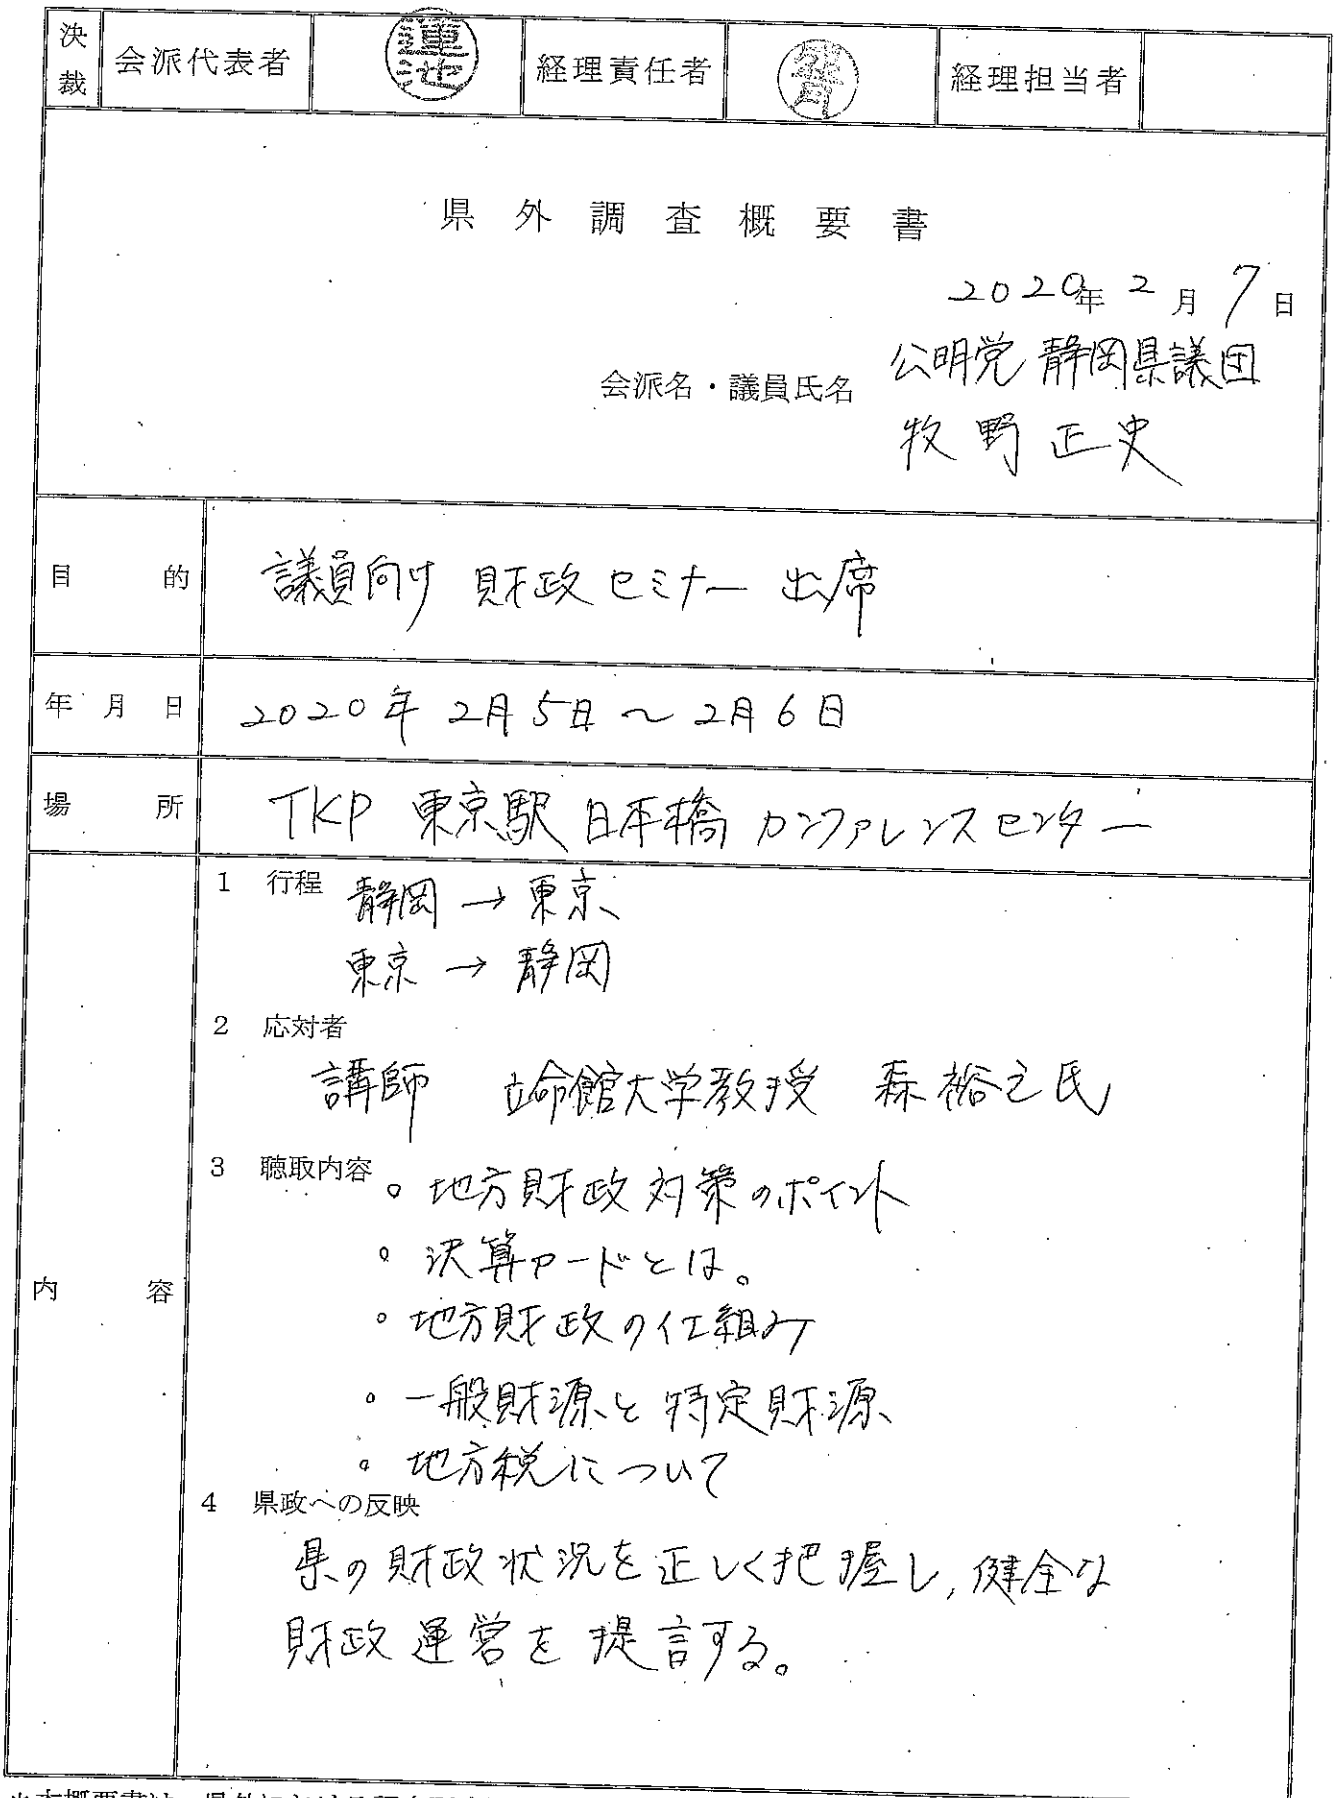 決裁 会派代表者 蓮池 経理責任者 経理担当者
県外調査概要書
2020年2月7日
公明党 静岡県議団
会派名・議員氏名
牧野正史
目的 議員向け 財政セミナー 出席
年月日 2020年2月5日~2月6日
場所 TKP 東京駅 日本橋 カンファレンスセンター
内容
1 行程 静岡→東京
東京→静岡
2 応対者
講師 立命館大学教授 森裕之氏
3 聴取内容 。地方財政対策のポイント
。決算カードとは。
。地方財政の仕組み
。一般財源と特定財源
。地方税について
4 県政への反映
県の財政状況を正しく把握し,健全な
財政運営を提言する。